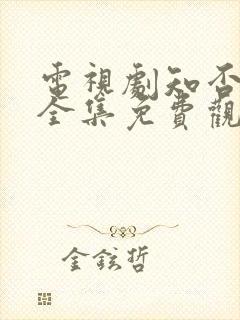 電視劇知否
全集免費觀
金鉉哲